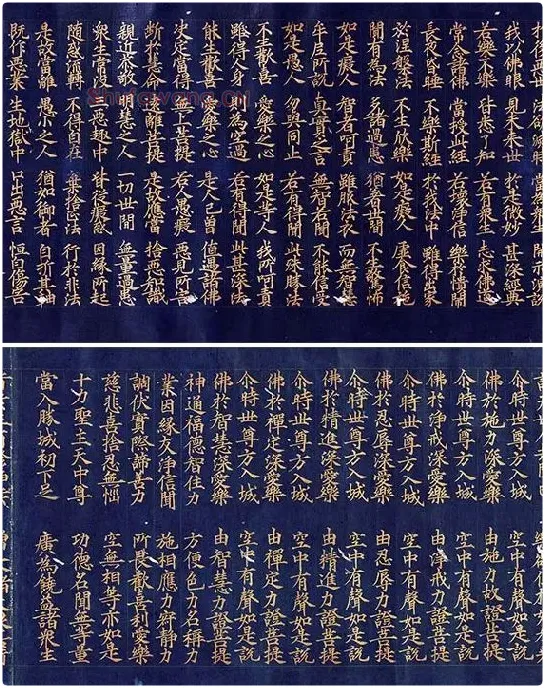 我以佛眼 見未來世 於是微妙 甚深經典
若樂不樂 我悉了知 若有衆生 志求佛道
常念諸佛 當授此經 若壞淨信 樂於憒鬧
長夜昏睡 不樂斯經 於我法中 雖得出家
不生欣樂 如是癡人 虛食信施
聞有為法 多諸過患 猶著世間 不生驚怖
如是癡人 智者呵責 雖服法衣 而無智慧
牟尼所說 真實之言 無智若聞 不能信受
如是愚人 勿與同止 若有得聞 此深勝法
不生歡喜 愛樂之心 如是等人 我所呵責
雖得人身 名為空過 若有得聞 此甚深法
能生歡喜 愛樂之心 是人已曾 值遇諸佛
決定當得 無上菩提 若人愚癡 惡見所害
斷於慧命 遠離菩提 是故應當 捨惡知識
親近恭敬 智慧之人 一切世間 無量過患
衆生常沒 三惡趣中 因緣所起
隨惑流轉 不得自在 棄捨正法 行於非法
是故當離 愚小之人 猶如御者 自折其軸
既作惡業 生地獄中 口出惡言 恒自傷害
Shufawang.CN
尒時世尊方入城 空中有聲如是說
佛於施力深愛樂 由施力故證菩提
尒時世尊方入城 空中有聲如是說
佛於淨戒深愛樂 由淨戒力證菩提
尒時世尊方入城 空中有聲如是說
佛於忍辱深愛樂 由忍辱力證菩提
尒時世尊方入城 空中有聲如是說
佛於精進深愛樂 由精進力證菩提
尒時世尊方入城 空中有聲如是說
佛於禪定深愛樂 由禪定力證菩提
尒時世尊方入城 空中有聲如是說
佛於智慧深愛樂 由智慧力證菩提
神通福德智住力 方便色力名稱力
業因緣力淨信聞 施相應力并靜力
調伏實際諦善力 所畏歡喜利愛樂
慈悲喜捨忍無惱 空無相等亦如是
十力聖主天中尊 功德名聞無等量
當入勝城初下足 廣為饒益諸衆生